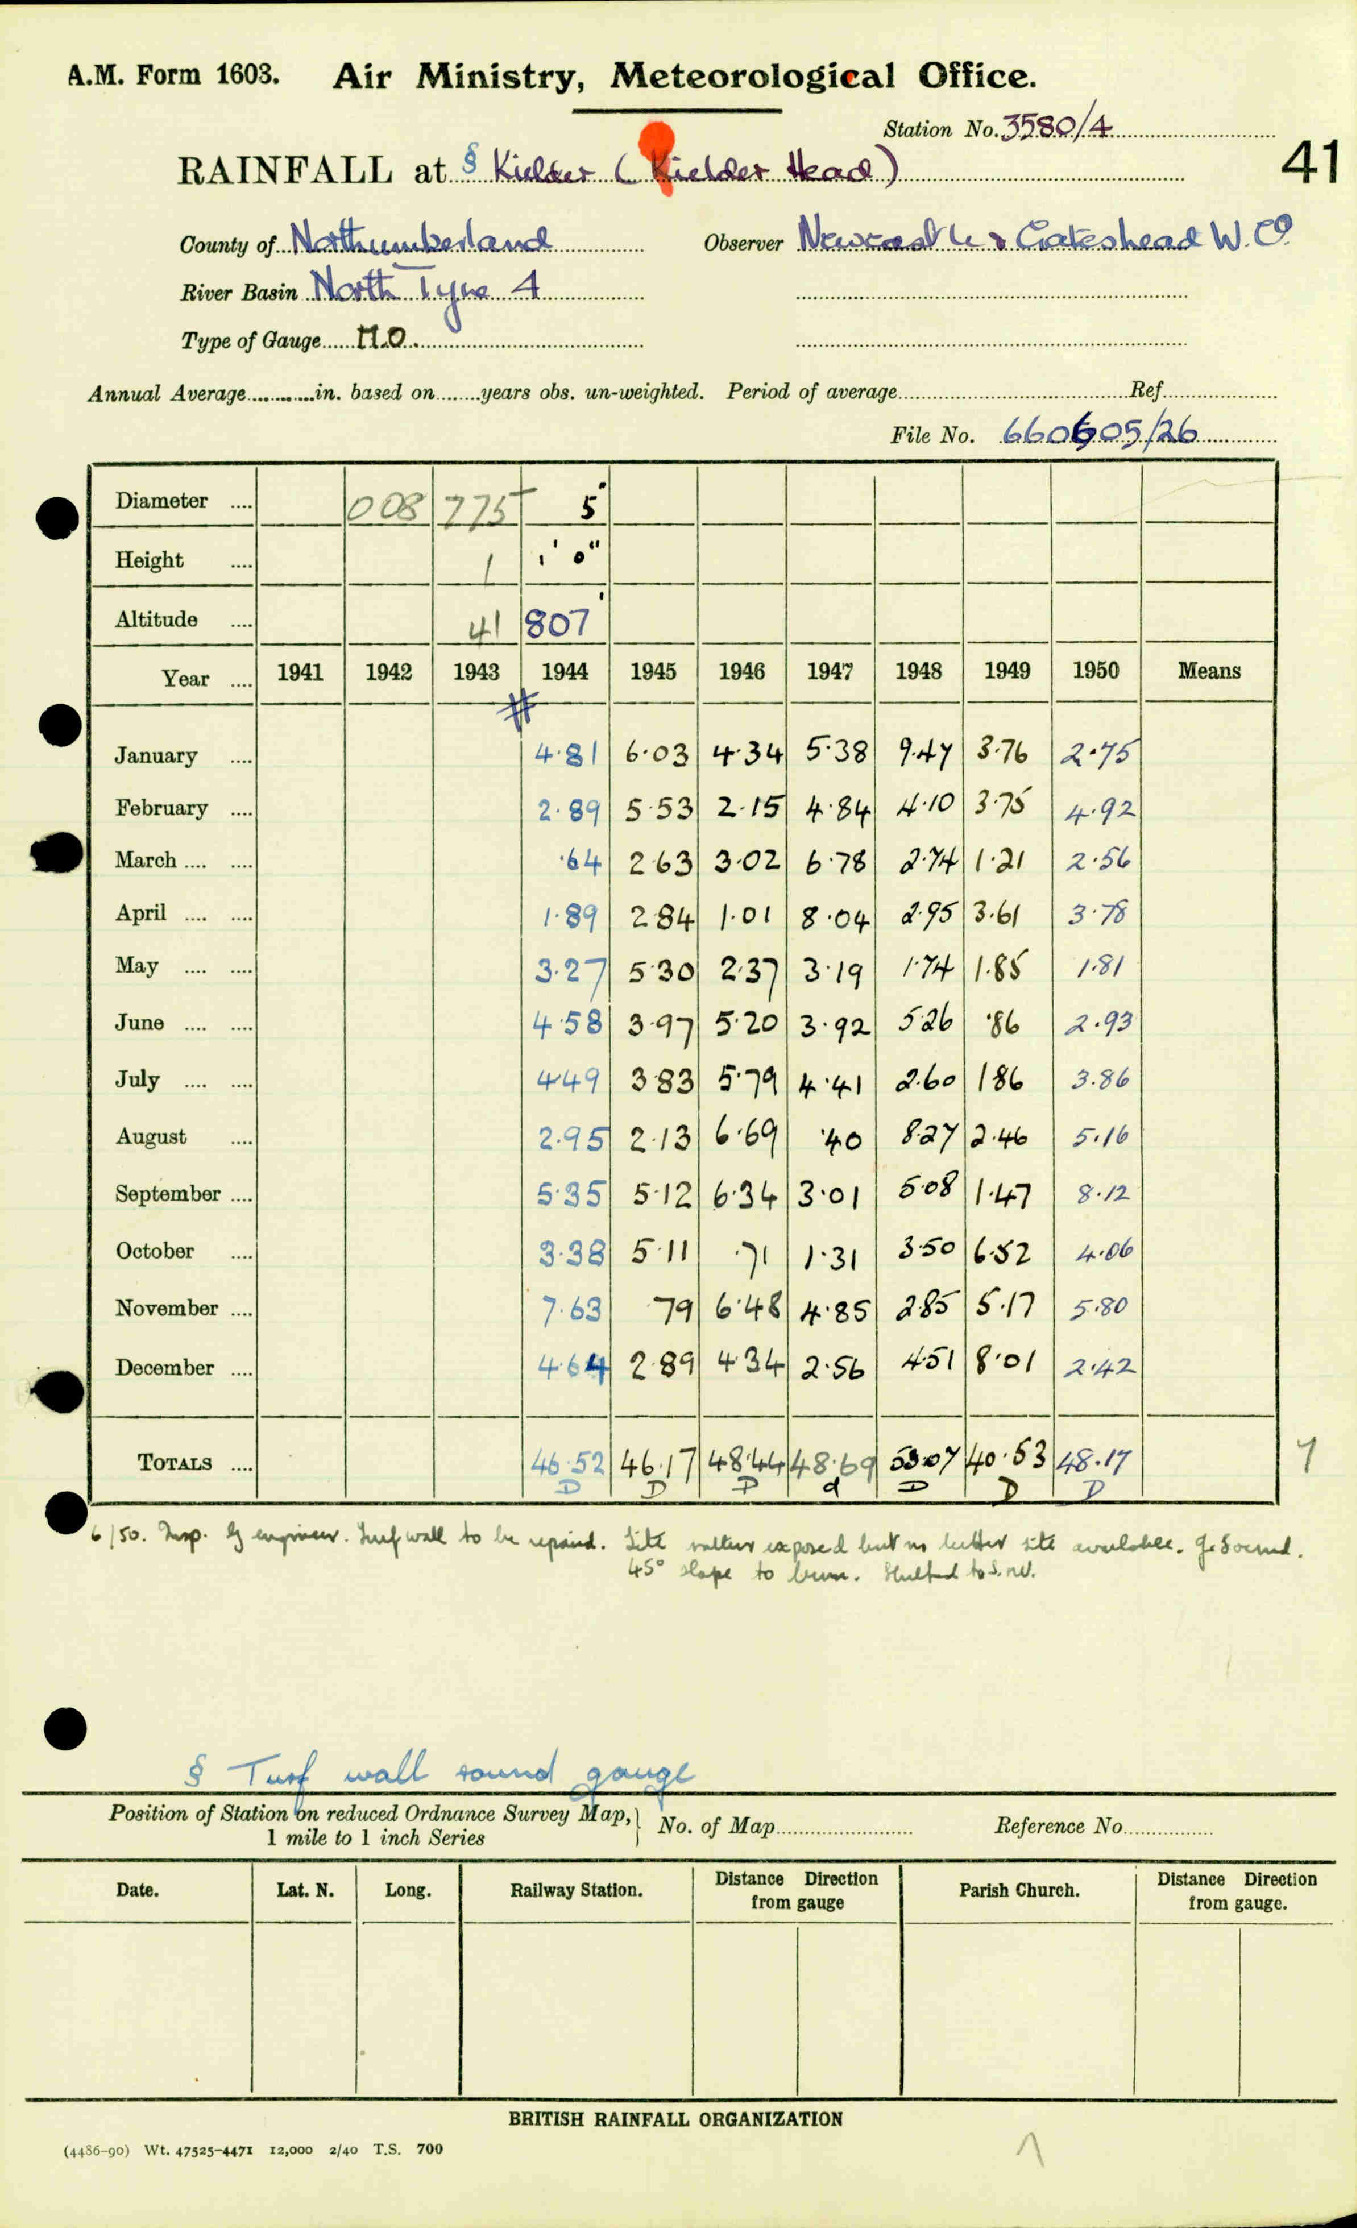 A.M. Form 1603. Air Ministry, Meteorological Office.
Station No. 3580/4
41
RAINFALL at § Kielder (Kielder Head)
County of Northumberland Observer Newcastle & Gateshead W. Co.
River Basin North Tyne 4
Type of Gauge M.O.
Annual Average in. based on years obs. un-weighted. Period of average Ref.
File No. 660605/26
Diameter 008 775 5"
Height 1 1' 0"
Altitude 41 807'
Year 1941 1942 1943 1944 1945 1946 1947 1948 1949 1950 Means
#
January 4.81 6.03 4.34 5.38 9.47 3.76 2.75
February 2.89 5.53 2.15 4.84 4.10 3.75 4.92
March .64 2.63 3.02 6.78 2.74 1.21 2.56
April 1.89 2.84 1.01 8.04 2.95 3.61 3.78
May 3.27 5.30 2.37 3.19 1.74 1.85 1.81
June 4.58 3.97 5.20 3.92 5.26 .86 2.93
July 4.49 3.83 5.79 4.41 2.60 1.86 3.86
August 2.95 2.13 6.69 .40 8.27 2.46 5.16
September 5.35 5.12 6.34 3.01 5.08 1.47 8.12
October 3.38 5.11 .71 1.31 3.50 6.52 4.06
November 7.63 79 6.48 4.85 2.85 5.17 5.80
December 4.64 2.89 4.34 2.56 4.51 8.01 2.42
TOTALS 46.52 46.17 48.44 48.69 53.07 40.53 48.17
D D D d D D D
6/50. Insp. by engineer. Turf wall to be repaired. Site rather exposed but no better site available. G. Sound.
45° slope to
§ Turf wall round gauge
Position of Station on reduced Ordnance Survey Map, } No. of Map Reference No.
1 mile to 1 inch Series
Date. Lat. N. Long. Railway Station. Distance Direction from gauge Parish Church. Distance Direction from gauge.
BRITISH RAINFALL ORGANIZATION
(4486-90) Wt. 47525-4471 12,000 2/40 T.S. 700